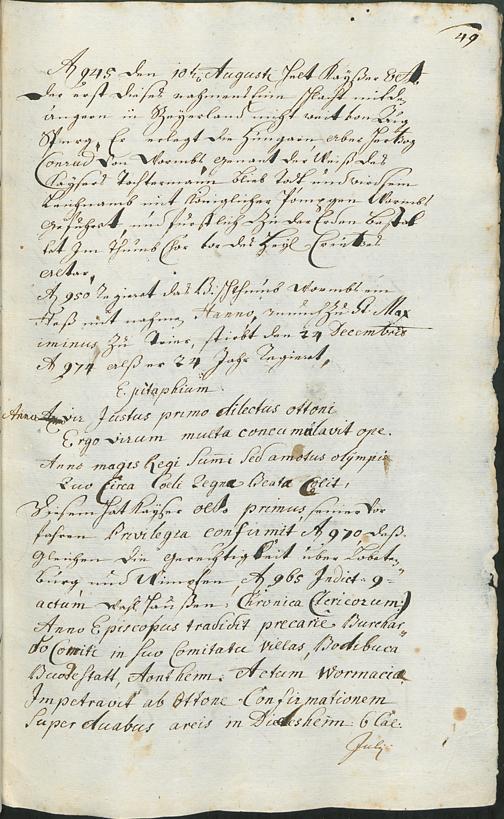 49
Aº 945 den 10t. Augusti helt Kayßer Otto
der erst dieses nahmens eine schlacht mit de
Ungern in Beyerland nicht weit von Aug
Spurg, Er erlegt die Hungarn, aber Hertzog
Conrad von Wormbs genant der Weiß des
Kaysers Tochtermann blieb todt und wird sein
Leichnamb mit Königlicher Pomp gen Wormbs
geführet, und fürstlich zu der Erden bestat
tet Im Thumb Chor vor des Heyl. Creutzes
altar,
Aº 950 Regieret das Bischthumb Wormbs ein
mit nahmen Hanno, zu St. Max
iminus zu Trier, stirbt den 24 Decembris
Aº 974 alß er 24 Jahr Regieret,
Epitaphium.
Anno vir Justus primo dilectus ottoni
Ergo virum multa concumulavit ope.
Anno magis Regi Sum̃i sed amotus olympi
Quo Circa Coeli Regna Beata Colit,
Diesem hat Kayser Otto primus, seiner vor
fahren Privilegia confirmit Aº 970 deß
gleichen die Gerechtigkeit über Lobeten
burg und Wimpfen, Aº 965 Indict. 9
actum, Chronica Clericorum,
Anno Episcopus tradidit precariè Burchar
do Comiti in suo Comitatu villas, Bodibura
Budestatt, Hontheim. Actum Wormaciæ
Impetravit ab Ottone Confirmationem
super duabus areis in Diedesheim 6 Cal.
Julj.